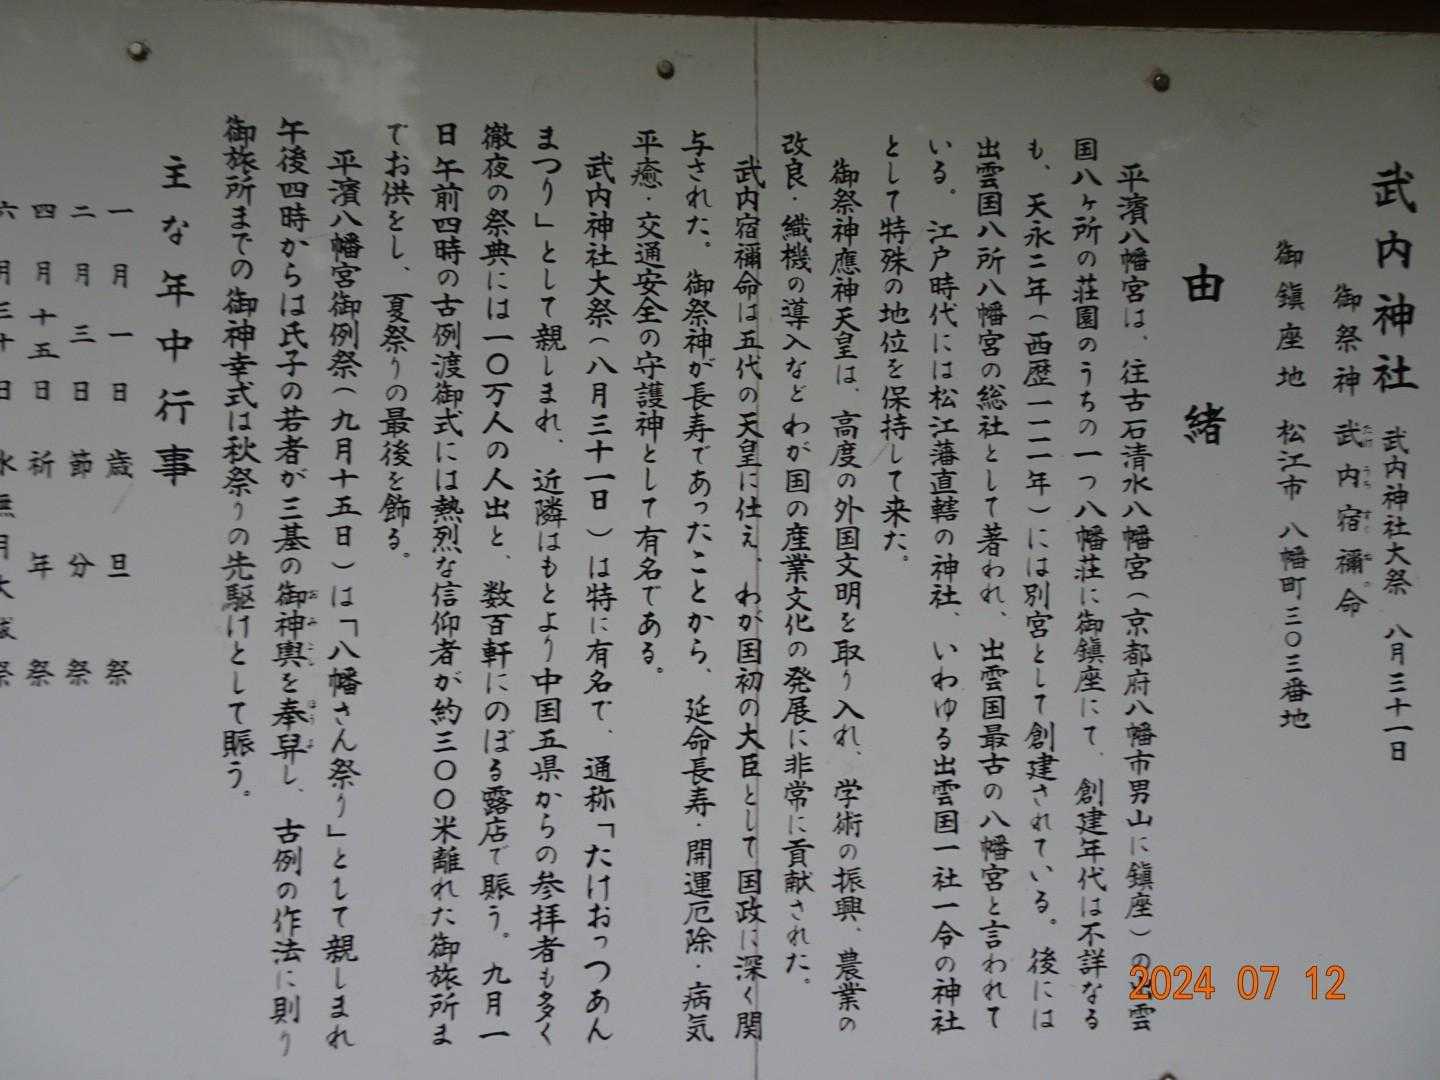 武内神社
武内神社大祭　八月三十一日
御祭神　武内宿禰命
御鎮座地　松江市　八幡町三〇三番地
由　緒
平濱八幡宮は、往古石清水八幡宮（京都府八幡市男山に鎮座）の出雲
国八ヶ所の荘園のうちの一つ八幡荘に御鎮座にて、創建年代は不詳なる
も、天永二年（西歴一一一一年）には別宮として創建されている。後には
出雲国八所八幡宮の総社として著われ、出雲国最古の八幡宮と言われて
いる。江戸時代には松江藩直轄の神社、いわゆる出雲国一社一令の神社
として特殊の地位を保持して来た。
御祭神應神天皇は、高度の外国文明を取り入れ、学術の振興、農業の
改良・織機の導入などわが国の産業文化の発展に非常に貢献された。
武内宿禰命は五代の天皇に仕え、わが国初の大臣として国政に深く関
与された。御祭神が長寿であったことから、延命長寿・開運厄除・病気
平癒・交通安全の守護神として有名である。
武内神社大祭（八月三十一日）は特に有名で、通称「たけおっつあん
まつり」として親しまれ、近隣はもとより中国五県からの参拝者も多く
徹夜の祭典には一〇万人の人出と、数百軒にのぼる露店で賑う。九月一
日午前四時の古例渡御式には熱烈な信仰者が約三〇〇米離れた御旅所ま
でお供をし、夏祭りの最後を飾る。
平濱八幡宮御例祭（九月十五日）は「八幡さん祭り」として親しまれ
午後四時からは氏子の若者が三基の御神輿を奉舁し、古例の作法に則り
御旅所までの御神幸式は秋祭りの先駆けとして賑う。
主な年中行事
一月一日　歳旦祭
二月三日　節分祭
四月十五日　祈年祭
六月三十日　水無月大祓祭
2024 07 12